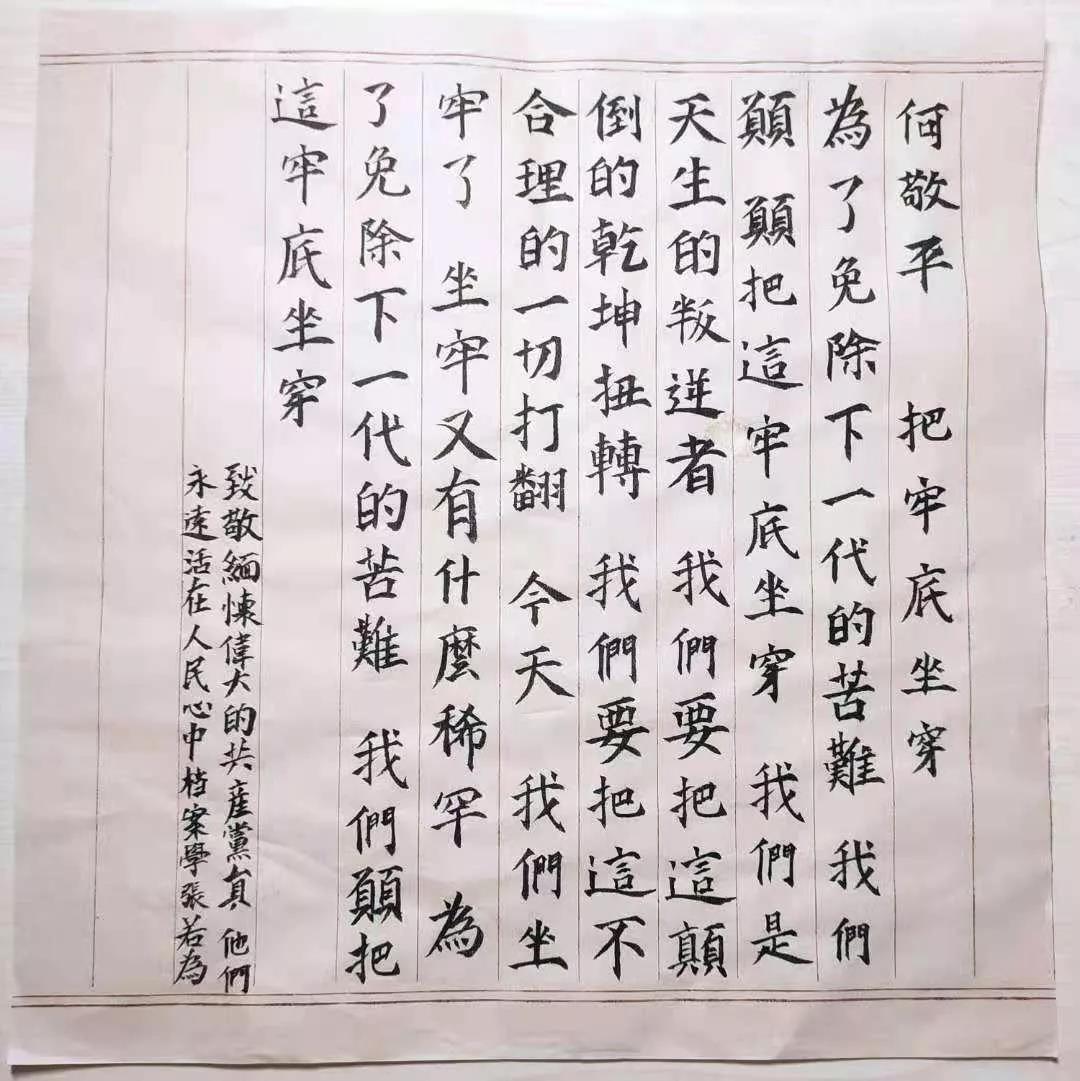 何敬平 把牢底坐穿
為了免除下一代的苦難 我們
願 願把這牢底坐穿 我們是
天生的叛逆者 我們要把這顛
倒的乾坤扭轉 我們要把這不
合理的一切打翻 今天 我們坐
牢了 坐牢又有什麼稀罕 為
了免除下一代的苦難 我們願把
這牢底坐穿
致敬緬懷偉大的共產黨員 他們
永遠活在人民心中 档案學 張若為